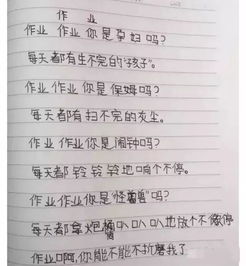 作 业
作业 作业 你是孕妇吗?
每天都有生不完的“孩子”。
作业 作业 你是保姆吗?
每天都有扫不完的灰尘。
作业 作业你是闹钟吗?
每天都 铃 铃 铃 地响个不停。
作业 作业 你是“怪兽兽”吗?
每天都拿炮桶叭叭叭地放个不停
作业啊,你能不能不折磨我了